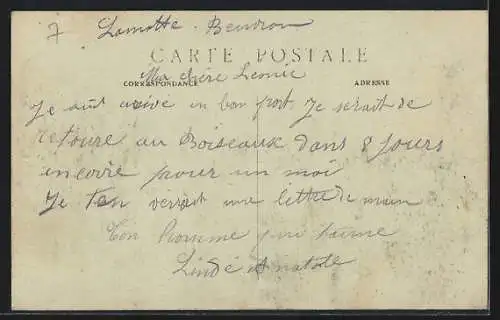 7 Lamotte-Beuvron
CARTE POSTALE
Ma chère Leonie
CORRESPONDANCE ADRESSE
Je aût arivé en bon port Je serait de
retouré au Boiseaux dans 8 Jours
encoire pour un moi
Je ten verrait une lettre de main
Ton homme qui taime